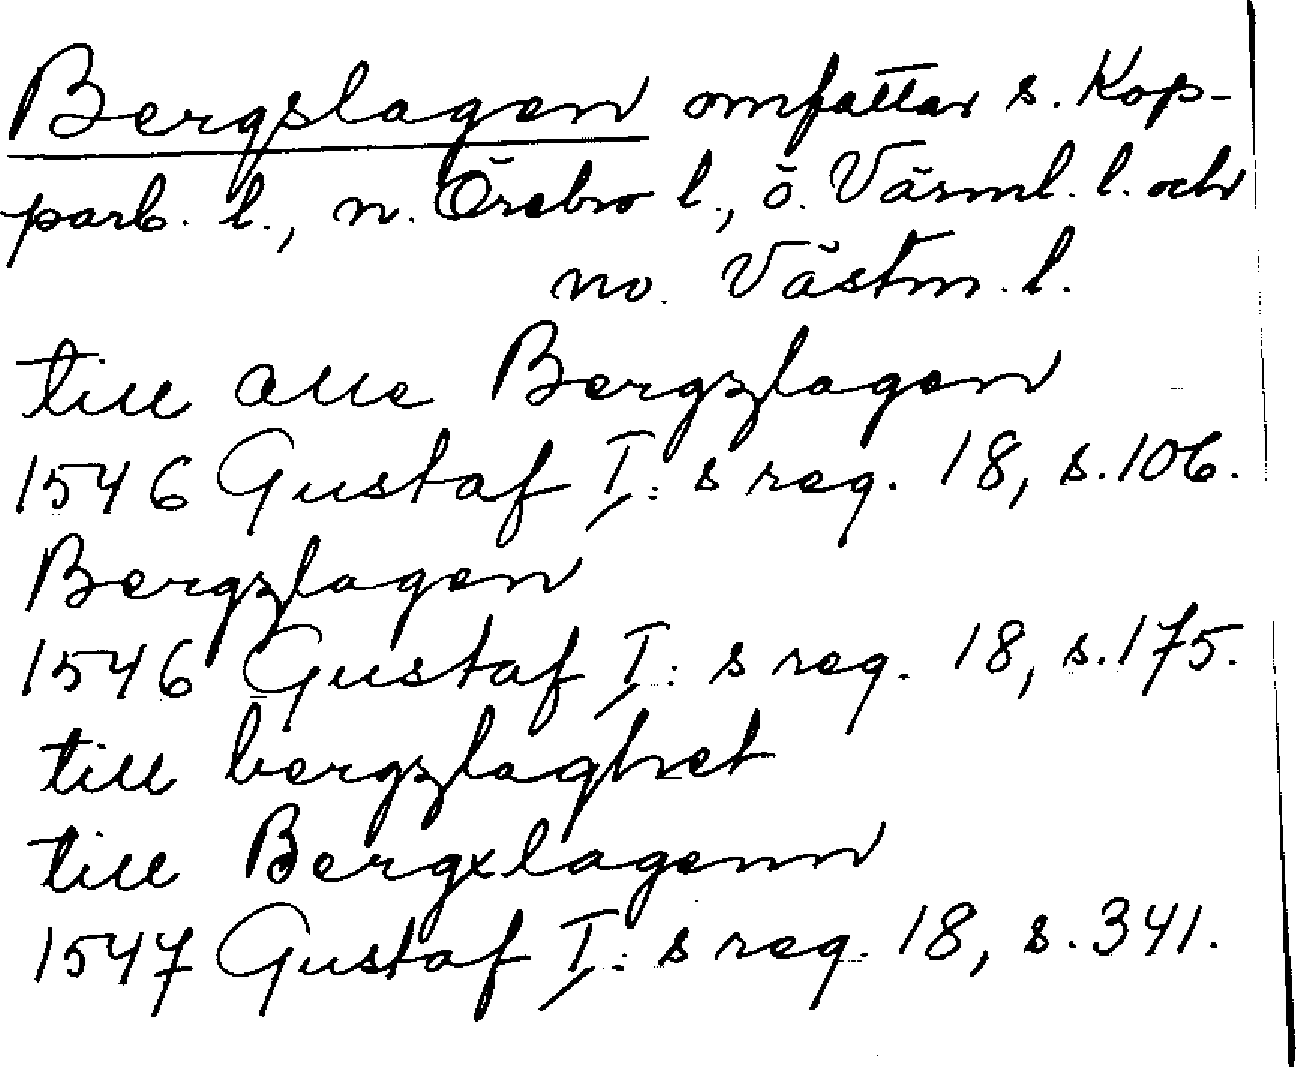 Bergslagen omfattar s. Kop-
parb. l., n. Örebro l., ö. Värml. l. och
no. Västm. l.
till alle Bergzlagen
1546 Gustaf I: s reg. 18, s. 106.
Bergzlagen
1546 Gustaf I: s reg. 18, s. 175.
till bergzlaghet
till Bergxlagenn
1547 Gustaf I: s reg. 18, s. 341.